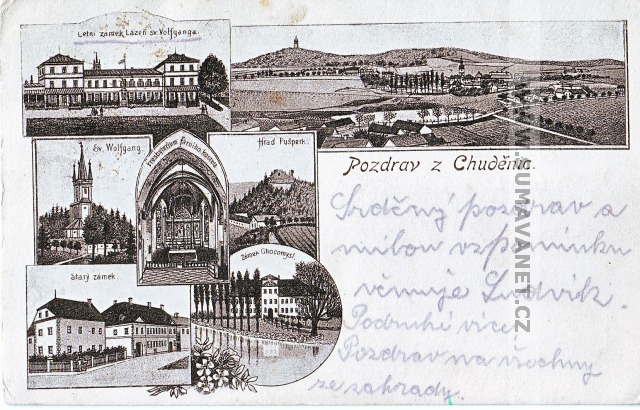 Letní zámek Lázeň sv. Wolfganga.
Sv. Wolfgang.
Presbyterium farního kostela
Hrad Pušperk.
Starý zámek.
Zámek Chocomyšl.
Pozdrav z Chuděnic.
Srdečný pozdrav a
milou vzpomínku
věnuje Ludvík.
Podruhé více.
Pozdrav na všechny
ze zahrady.
WWW.SUMAVANET.CZ